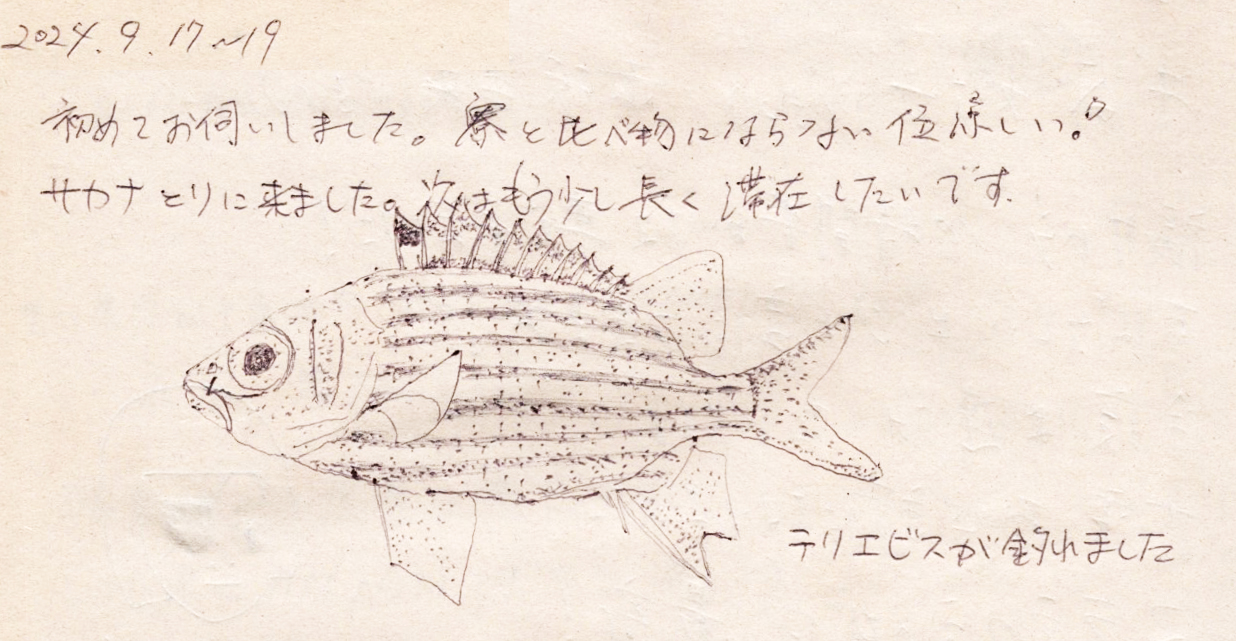 2024.9.17~19
初めてお伺いしました。寮と比べ物にならない位涼しい。
サカナとりに来ました。次はもう少し長く滞在したいです.
テリエビスが釣れました